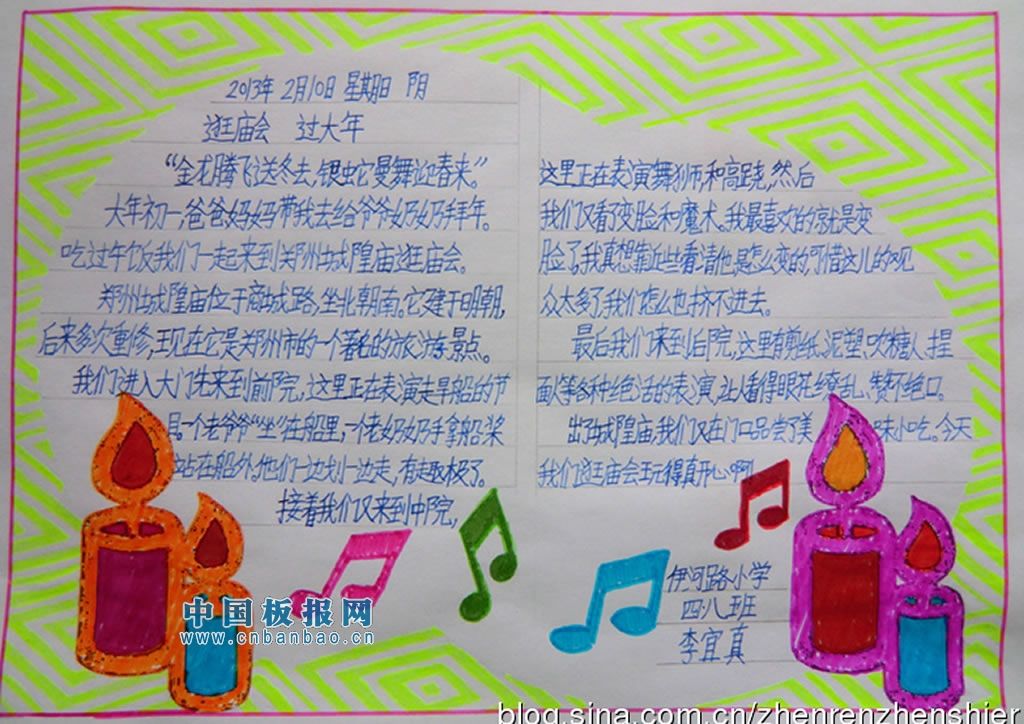 2013年 2月10日 星期日 阴
逛庙会 过大年
“金龙腾飞送冬去,银蛇曼舞迎春来。”
大年初一,爸爸妈妈带我去给爷爷奶奶拜年。
吃过午饭我们一起来到郑州城隍庙逛庙会。
郑州城隍庙位于商城路,坐北朝南。它建于明朝,
后来多次重修,现在它是郑州市的一个著名的旅游景点。
我们进入大门先来到前院,这里正在表演走旱船的节
目。一个老爷爷“坐”在船里,一个老奶奶手拿船桨
站在船外,他们一边划一边走,有趣极了。
接着我们又来到中院,
这里正在表演舞狮和高跷,然后
我们又看了变脸和魔术。我最喜欢的就是变
脸了,我真想靠近些看清他是怎么变的,可惜这儿的观
众太多了,我们怎么也挤不进去。
最后我们来到后院,这里有剪纸、泥塑、吹糖人、捏
面人等各种绝活的表演,让人看得眼花缭乱、赞不绝口。
出了城隍庙,我们又在门口品尝了美味小吃。今天
我们逛庙会玩得真开心啊!
伊河路小学
四·八班
李宜真
中国板报网
www.cnbanbao.cn
blog.sina.com.cn/zhenrenzhenshier